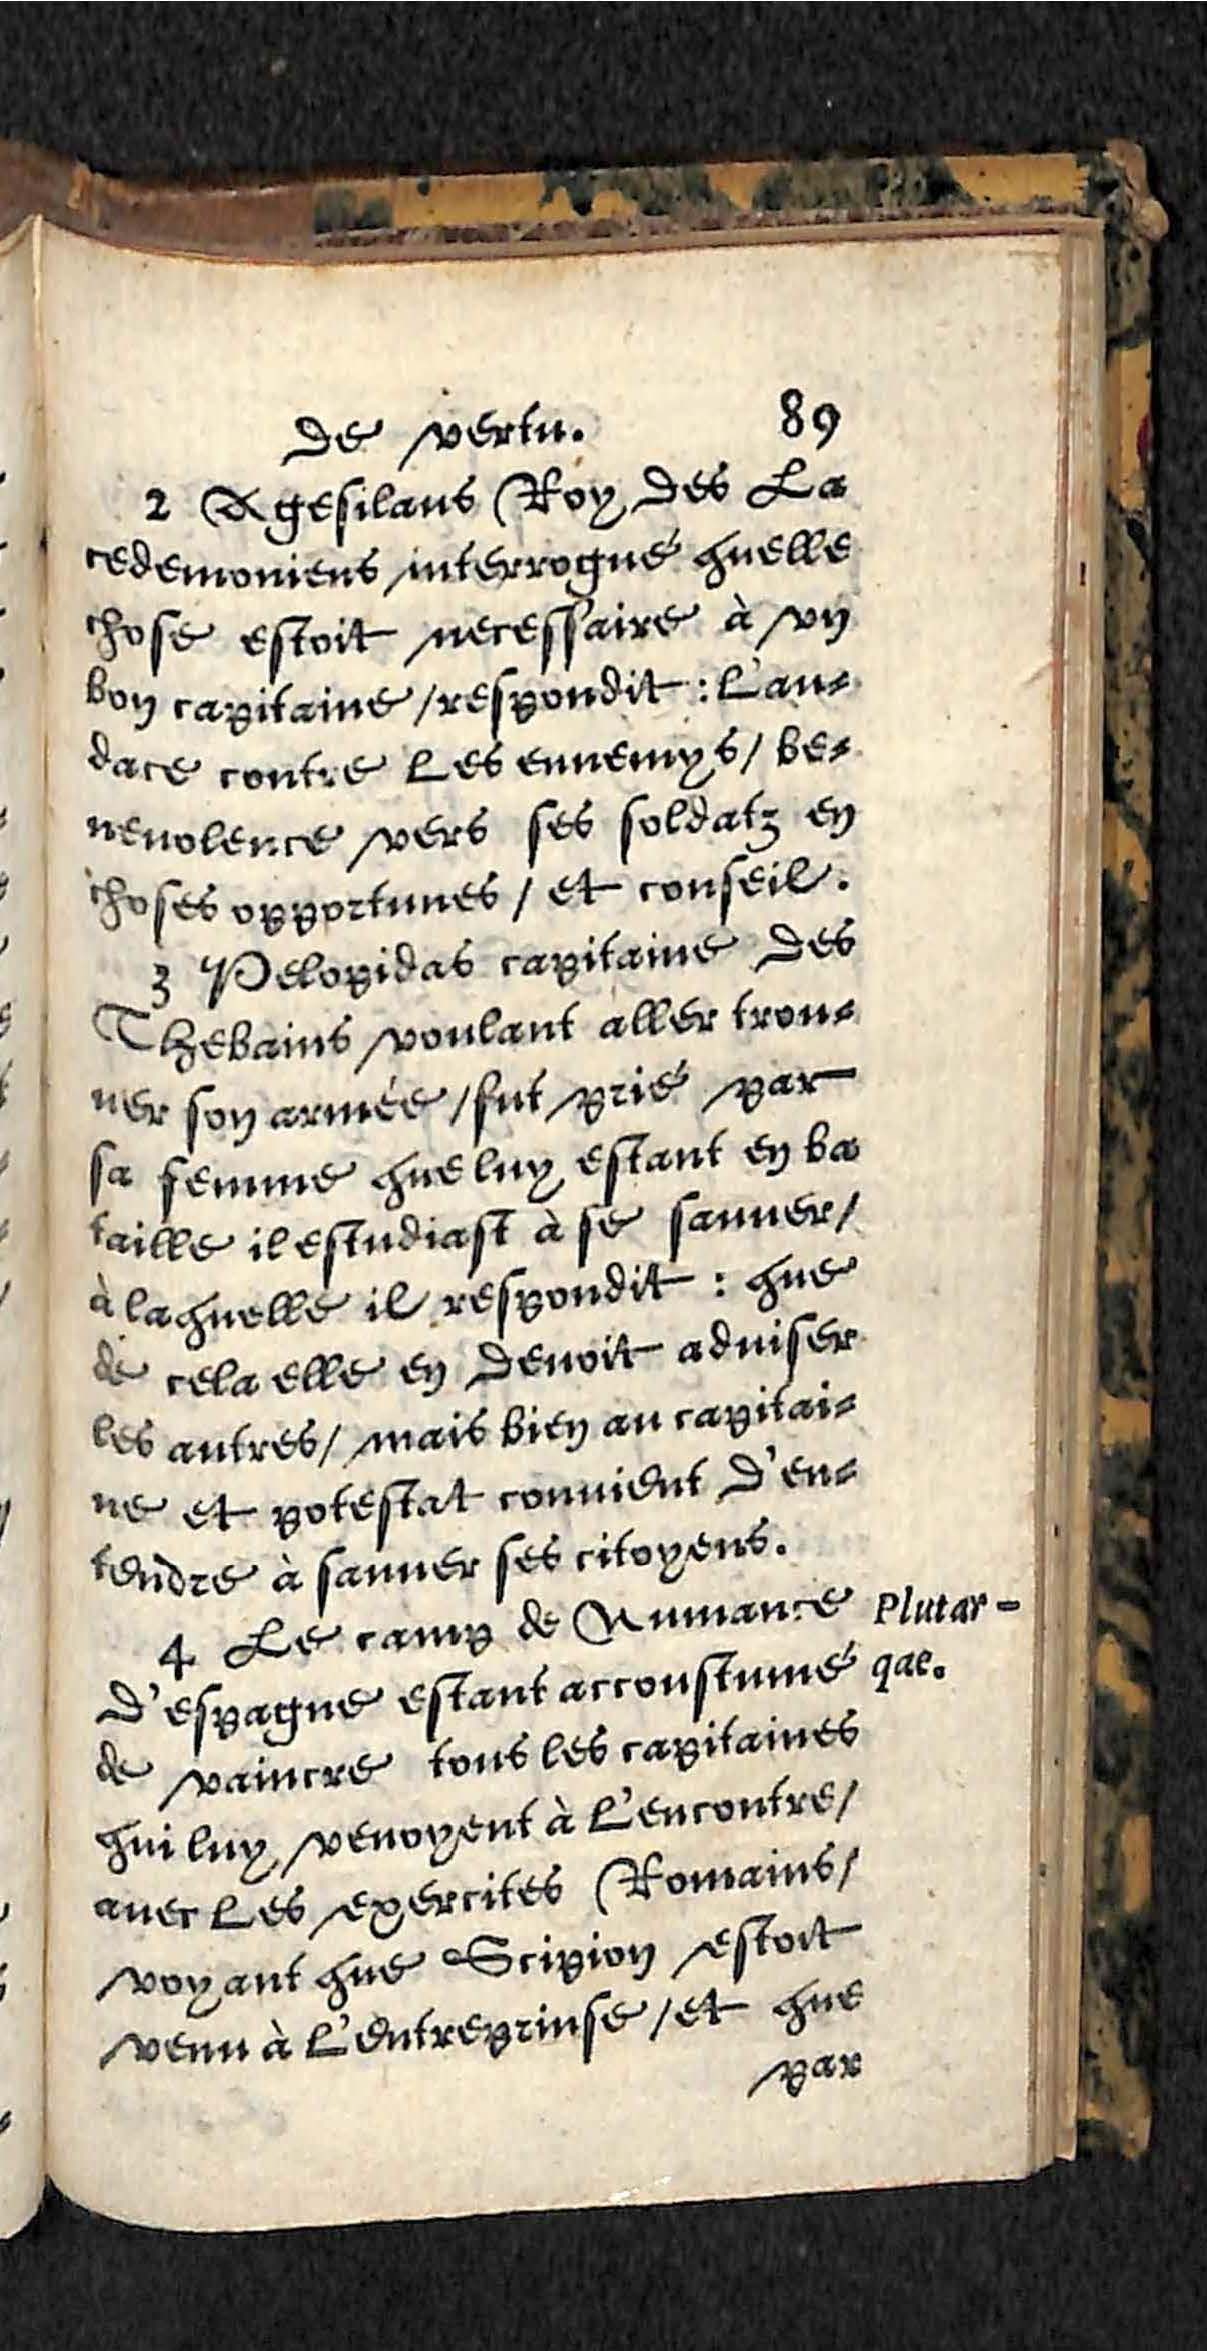 de vertu. 89
2 Agesilaus Roy des La
cedemoniens interrogué quelle
chose estoit necessaire à vn
bon capitaine / respondit : L'au-
dace contre les ennemys / be-
neuolence vers ses soldatz en
choses opportunes / et conseil.
3 Pelopidas capitaine des
Thebains voulant aller trou-
uer son armée / fut prié par
sa femme que luy estant en ba
taille il estudiast à se sauuer /
à laquelle il respondit : que
de cela elle en deuoit aduiser
les autres / mais bien au capitai-
ne et potestat conuient d'en-
tendre à sauuer ses citoyens.
4 Le camp de Numance Plutar-
d'espagne estant accoustumé que.
de vaincre tous les capitaines
qui luy venoyent à l'encontre /
auec les exercites Romains /
voyant que Scipion estoit
venu à l'entreprinse / et que
par